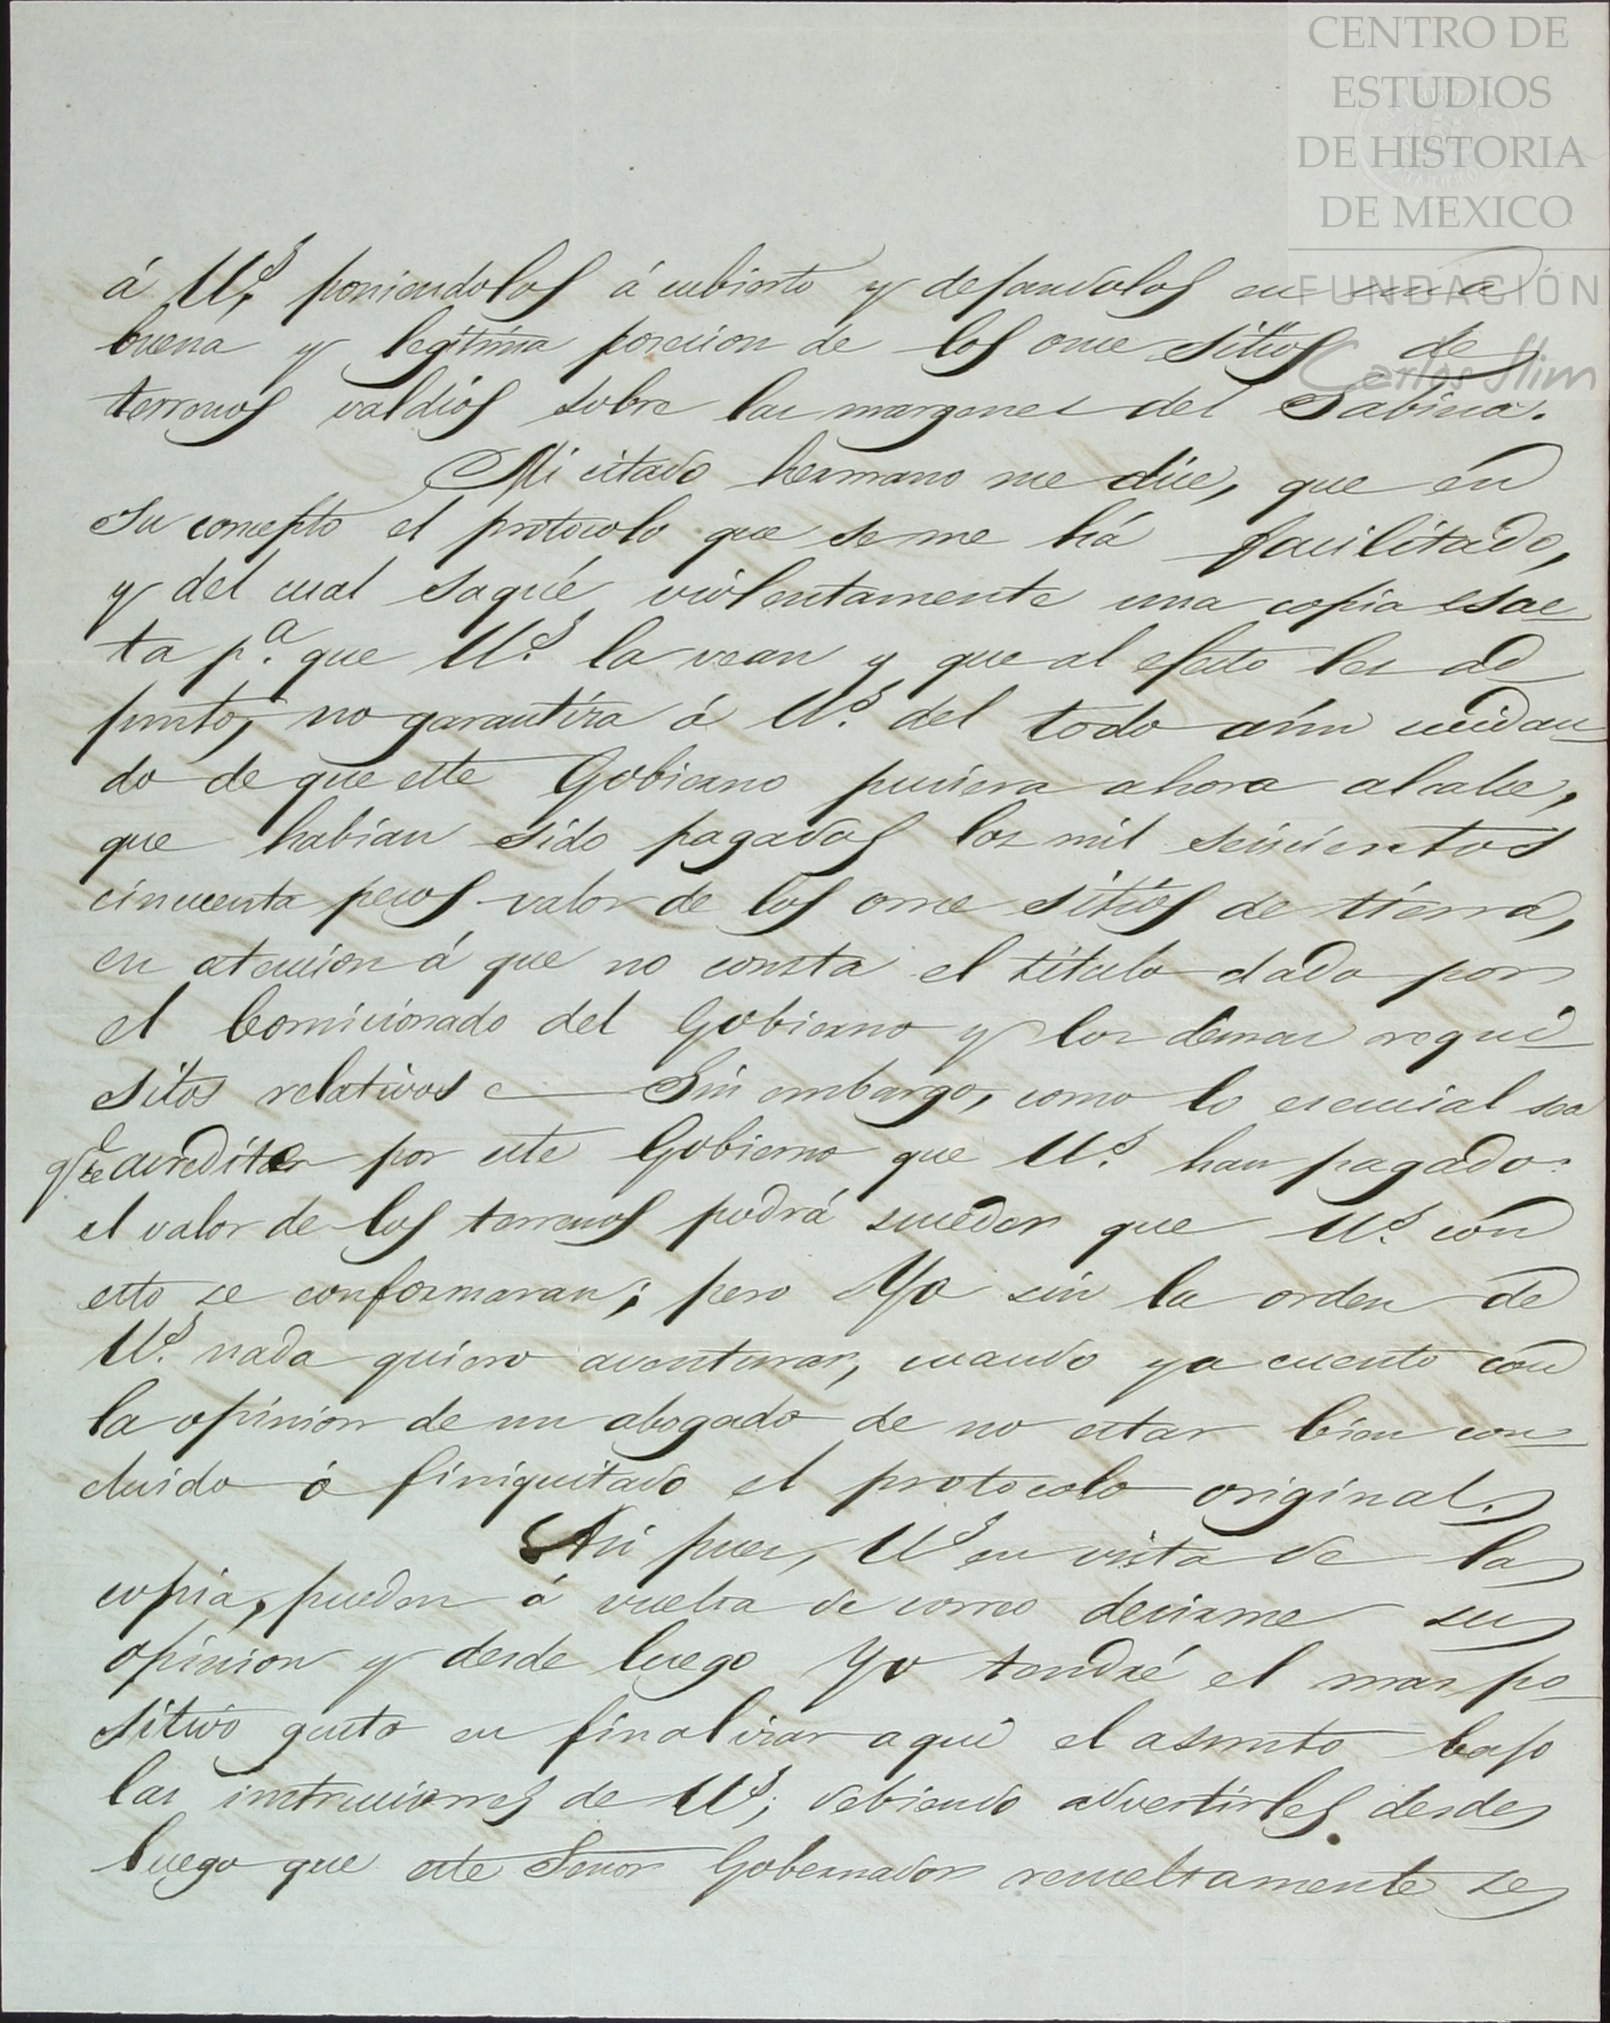 CENTRO DE
ESTUDIOS
DE HISTORIA
DE MEXICO
FUNDACIÓN
Carlos Slim
á Us. poniendolos á cubierto y dejandolos en una
buena y legitima posecion de los once sitios de
terrenos valdios sobre las margenes del Sabina.
Mi citado hermano me dice, que en
su concepto el protocolo que se me há facilitado,
y del cual saqué violentamente una copia esac
ta pa. que Us. la vean y que al efecto les ad
junto, no garantira á Us. del todo aún cuidan
do de que este Gobierno pusiera ahora al calce,
que habian sido pagados los mil seiscientos
cincuenta pesos valor de los once sitios de tierra,
en atencion á que no consta el titulo dado por
el Comicionado del Gobierno y los demas requi
sitos relativos Sin embargo, como lo esencial sea
que se acredite por este Gobierno que Us. han pagado
el valor de los terrenos podrá suceder que Us. con
esto se conformaran; pero Yo sin la orden de
Us. nada quiero aventurar, cuando ya cuento con
la opinion de un abogado de no estar bien con
cluido ó finiquitado el protocolo original.
Asi pues, Us en vista de la
copia, pueden á vuelta de correo decirme su
opinion y desde luego Yo tendré el mas po
sitivo gusto en finalizar aqui el asunto bajo
las instrucciones de Us; debiendo advertirles desde
luego que este Señor Gobernador resueltamente se